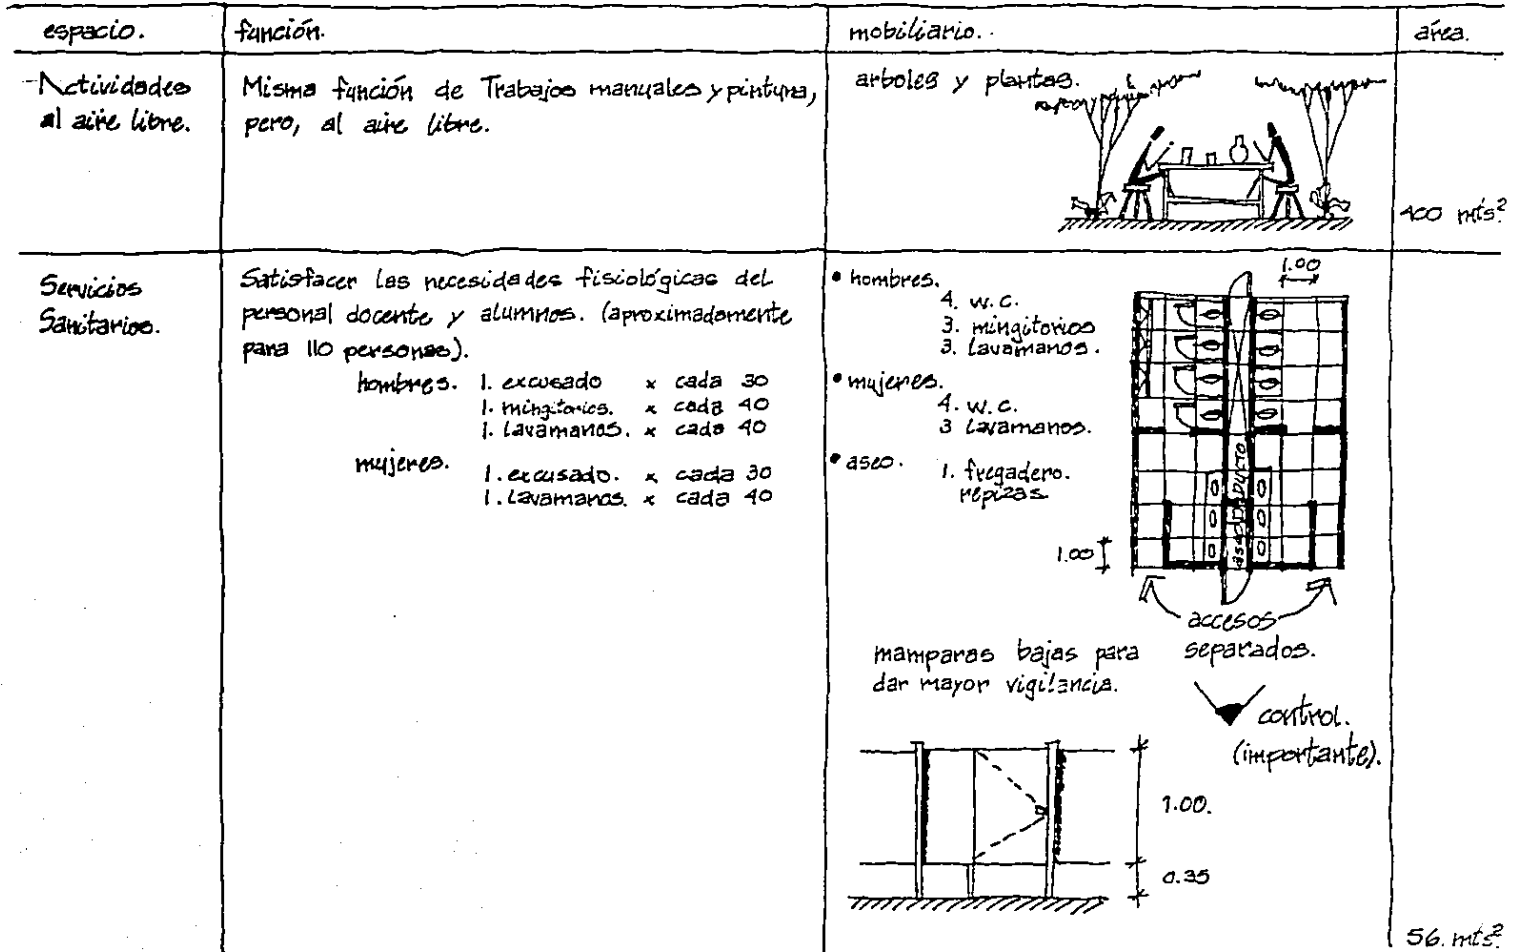 espacio.
función.
mobiliario.
área.
Actividades
al aire libre.
Misma función de Trabajos manuales y pintura,
pero, al aire libre.
arboles y plantas.
400 mts²
Servicios
Sanitarios.
Satisfacer las necesidades fisiológicas del
personal docente y alumnos. (aproximadamente
para 110 personas).
hombres. 1. excusado x cada 30
1. mingitorios. x cada 40
1. lavamanos. x cada 40
mujeres.
1. excusado. x cada 30
1. lavamanos. x cada 40
• hombres.
4. w.c.
3. mingitorios
3. lavamanos.
• mujeres.
4. w.c.
3 lavamanos.
• aseo. 1. fregadero.
repizas
1.00
DUCTO
aseo
1.00
accesos
separados.
mamparas bajas para
dar mayor vigilancia.
control.
(importante).
1.00.
0.35
56. mts²